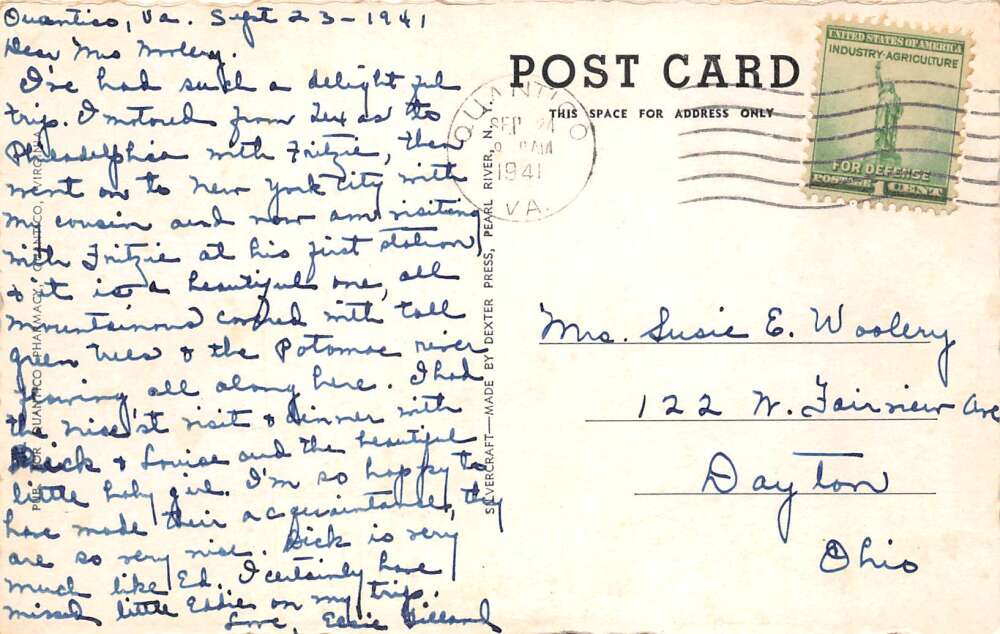 Quantico, Va. Sept 23-1941
Dear Mrs Woolery.
I've had such a delightful
trip. I motored from Texas to
Philadelphia with Fritzie, then
went on to New York City with
my cousin and now am visiting
with Fritzie at his first station
& it is a beautiful one, all
mountainous covered with tall
green trees & the Potomac river
flowing all along here. I had
the nise'st visit & dinner with
Dick & Louise and the beautiful
little baby girl. I'm so happy to
have made their acquaintance, they
are so very nise. Dick is very
much like Ed. I certainly have
missed little Eddie on my trip.
Love, Elsie
PUB. FOR QUANTICO PHARMACY, QUANTICO, VIRGINIA
SILVERCRAFT—MADE BY DEXTER PRESS, PEARL RIVER, N.
POST CARD
THIS SPACE FOR ADDRESS ONLY
QUANTICO
SEP 24
AM
1941
VA.
UNITED STATES OF AMERICA
INDUSTRY-AGRICULTURE
FOR DEFENSE
POSTAGE 1 CENT
Mrs. Susie E. Woolery
122 W. Fairview Ave
Dayton
Ohio